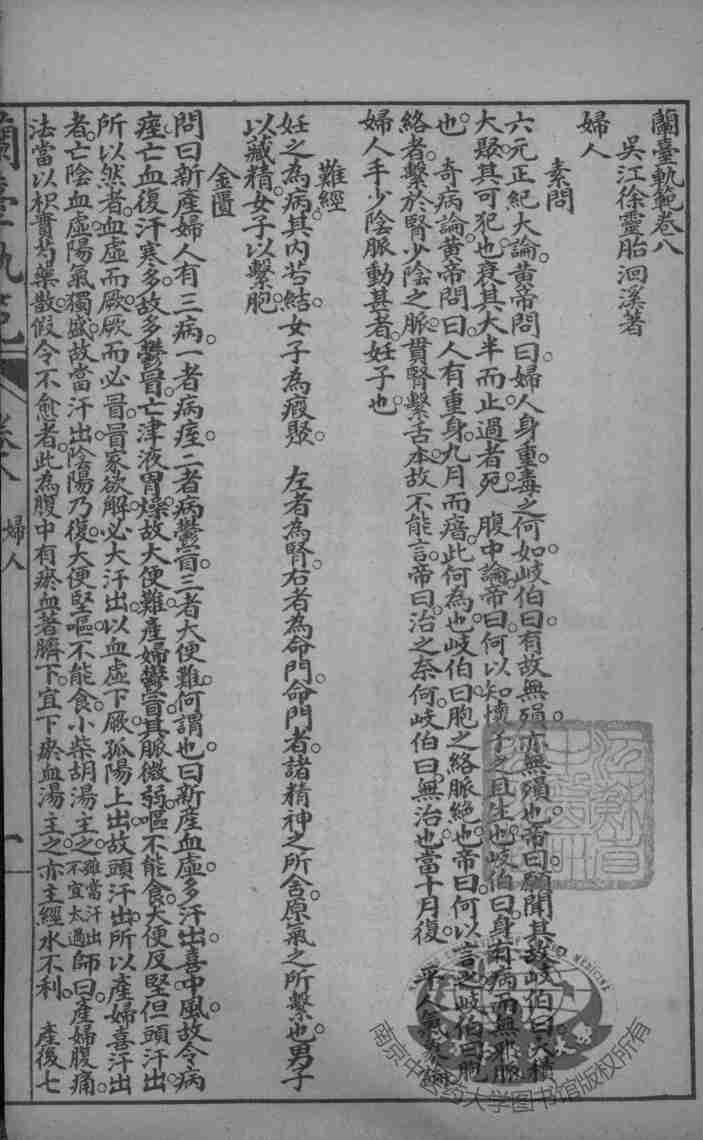 蘭臺軌範卷八
吳江徐靈胎洄溪著
婦人
素問
六元正紀大論。黄帝問曰。婦人身重。毒之何如。岐伯曰。有故無殞。亦無殞也。帝曰。願聞其故。岐伯曰。大積
大聚。其可犯也。衰其大半而止。過者死。腹中論。帝曰。何以知懷子之且生也。岐伯曰。身有病而無邪脈
也。奇病論。黄帝問曰。人有重身。九月而瘖。此何為也。岐伯曰。胞之絡脈絕也。帝曰。何以言之。岐伯曰。胞
絡者。繫於腎。少陰之脈。貫腎繫舌本。故不能言。帝曰。治之奈何。岐伯曰。無治也。當十月復。平人氣象論
婦人手少陰脈動甚者。妊子也。
難經
妊之為病。其內苦結。女子為瘕聚。左者為腎。右者為命門。命門者。諸精神之所舍。原氣之所繫也。男子
以藏精。女子以繫胞。
金匱
問曰。新產婦人有三病。一者病痙。二者病鬱冒。三者大便難。何謂也。曰。新產血虛。多汗出。喜中風。故令病
痙。亡血復汗。寒多。故多鬱冒。亡津液胃燥。故大便難。產婦鬱冒。其脈微弱。嘔不能食。大便反堅。但頭汗出。
所以然者。血虛而厥。厥而必冒。冒家欲解。必大汗出。以血虛下厥。孤陽上出。故頭汗出。所以產婦喜汗出
者。亡陰血虛。陽氣獨盛。故當汗出。陰陽乃復。大便堅。嘔不能食。小柴胡湯主之。雖當汗出不宜太過師曰。產婦腹痛。
法當以枳實芍藥散。假令不愈者。此為腹中有瘀血著臍下。宜下瘀血湯主之。亦主經水不利。產後七
卷八
婦人
一
南京中医药大学图书馆版权所有